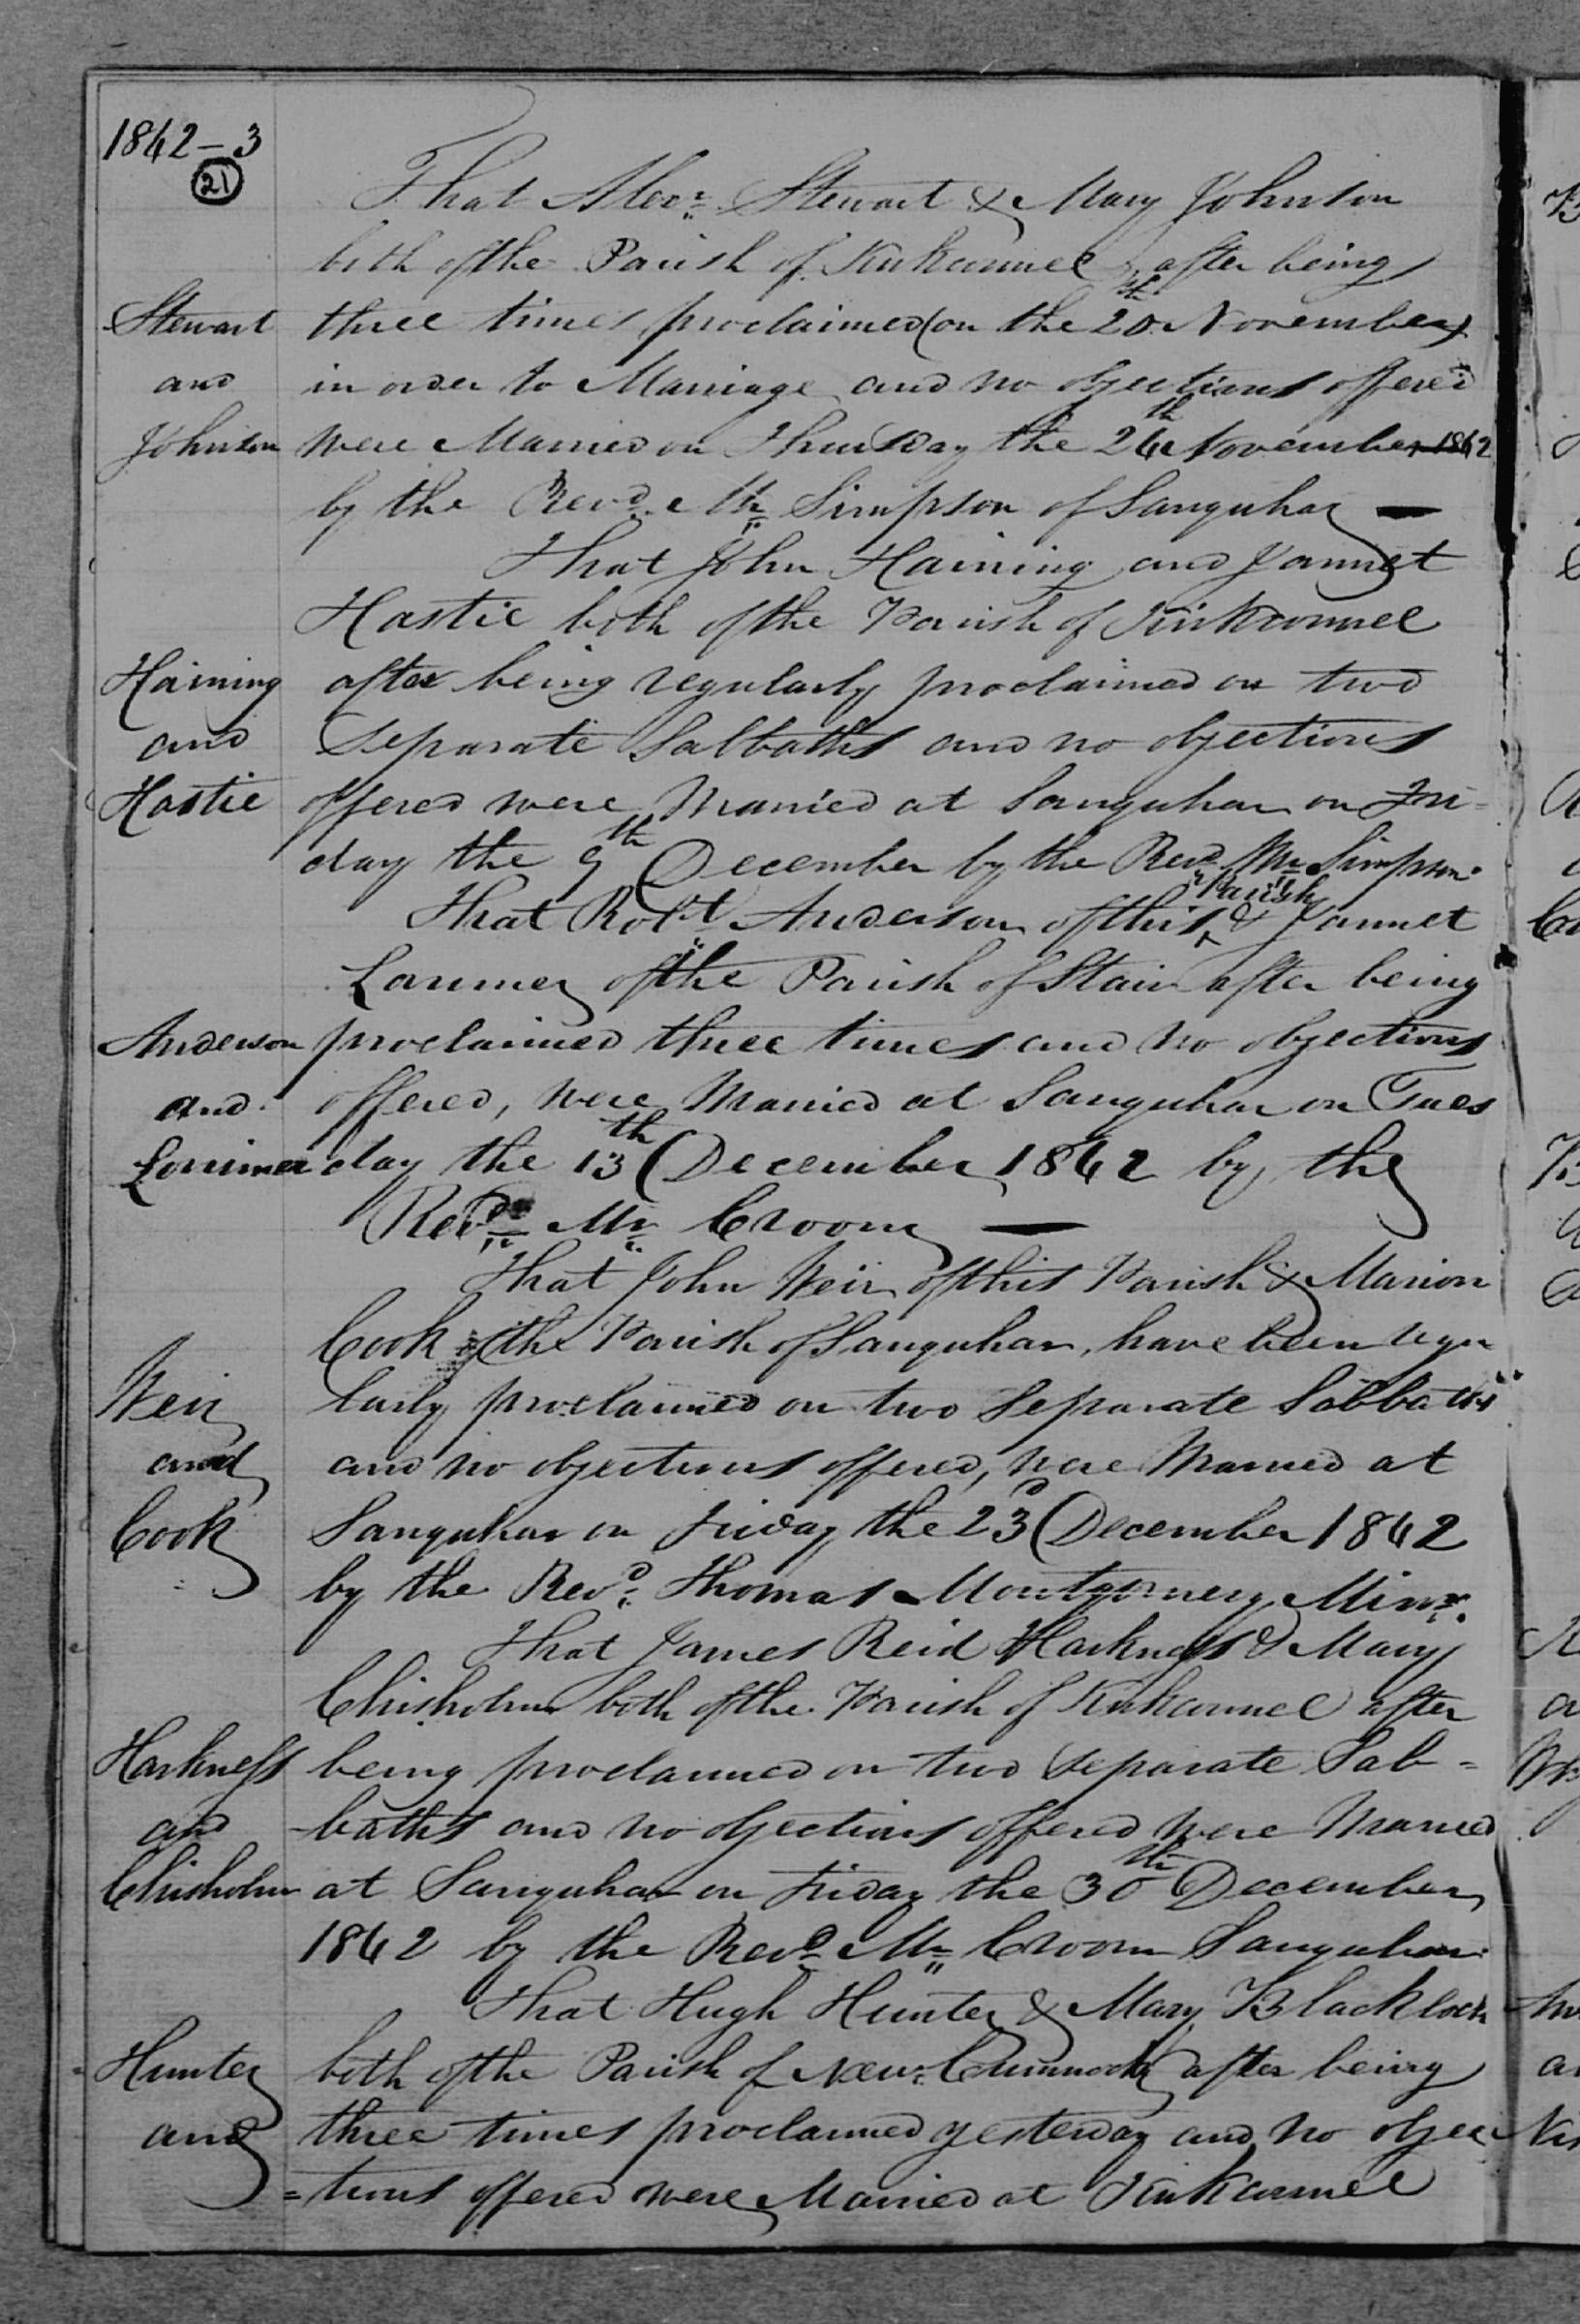 1842-3
21
That Alexr Stewart & Mary Johnston
both of the Parish of Kirkconnel, after being
Stewart three times proclaimed (on the 20th November)
and in order to Marriage and no objections offered
Johnston were Married on Thursday the 24th November 1842
by the Revd. Mr Simpson of Sanquhar —
That John Haining and Jannet
Hastie both of the Parish of Kirkconnel
Haining after being regularly proclaimed on two
and separate Sabbaths and no objections
Hastie offered were Married at Sanquhar on Fri=
day the 9th December by the Revd Mr Simpson.
That Robt Anderson of this Parish & Jannet
Lorimer of the Parish of Stair after being
Anderson proclaimed three times and no objections
and offered, were Married at Sanquhar on Tues
Lorimer day the 13th December 1842 by the
Revd Mr Croom —
That John Weir of this Parish & Marion
Cook of the Parish of Sanquhar, have been regu
Weir larly proclaimed on two separate Sabbaths
and and no objections offered, were Married at
Cook Sanquhar on Friday the 23d December 1842
by the Revd. Thomas Montgomery, Minr.
That James Reid Harkness & Mary
Chisholm both of the Parish of Kirkconnel after
Harkness being proclaimed on two separate Sab=
and -baths and no objections offered were Married
Chisholm at Sanquhar on Friday the 30th December
1842 by the Revd Mr Croom Sanquhar.
That Hugh Hunter & Mary Blacklock
Hunter both of the Parish of New Cumnock after being
and three times proclaimed yesterday and no objec
=tions offered were Married at Kirkconnel